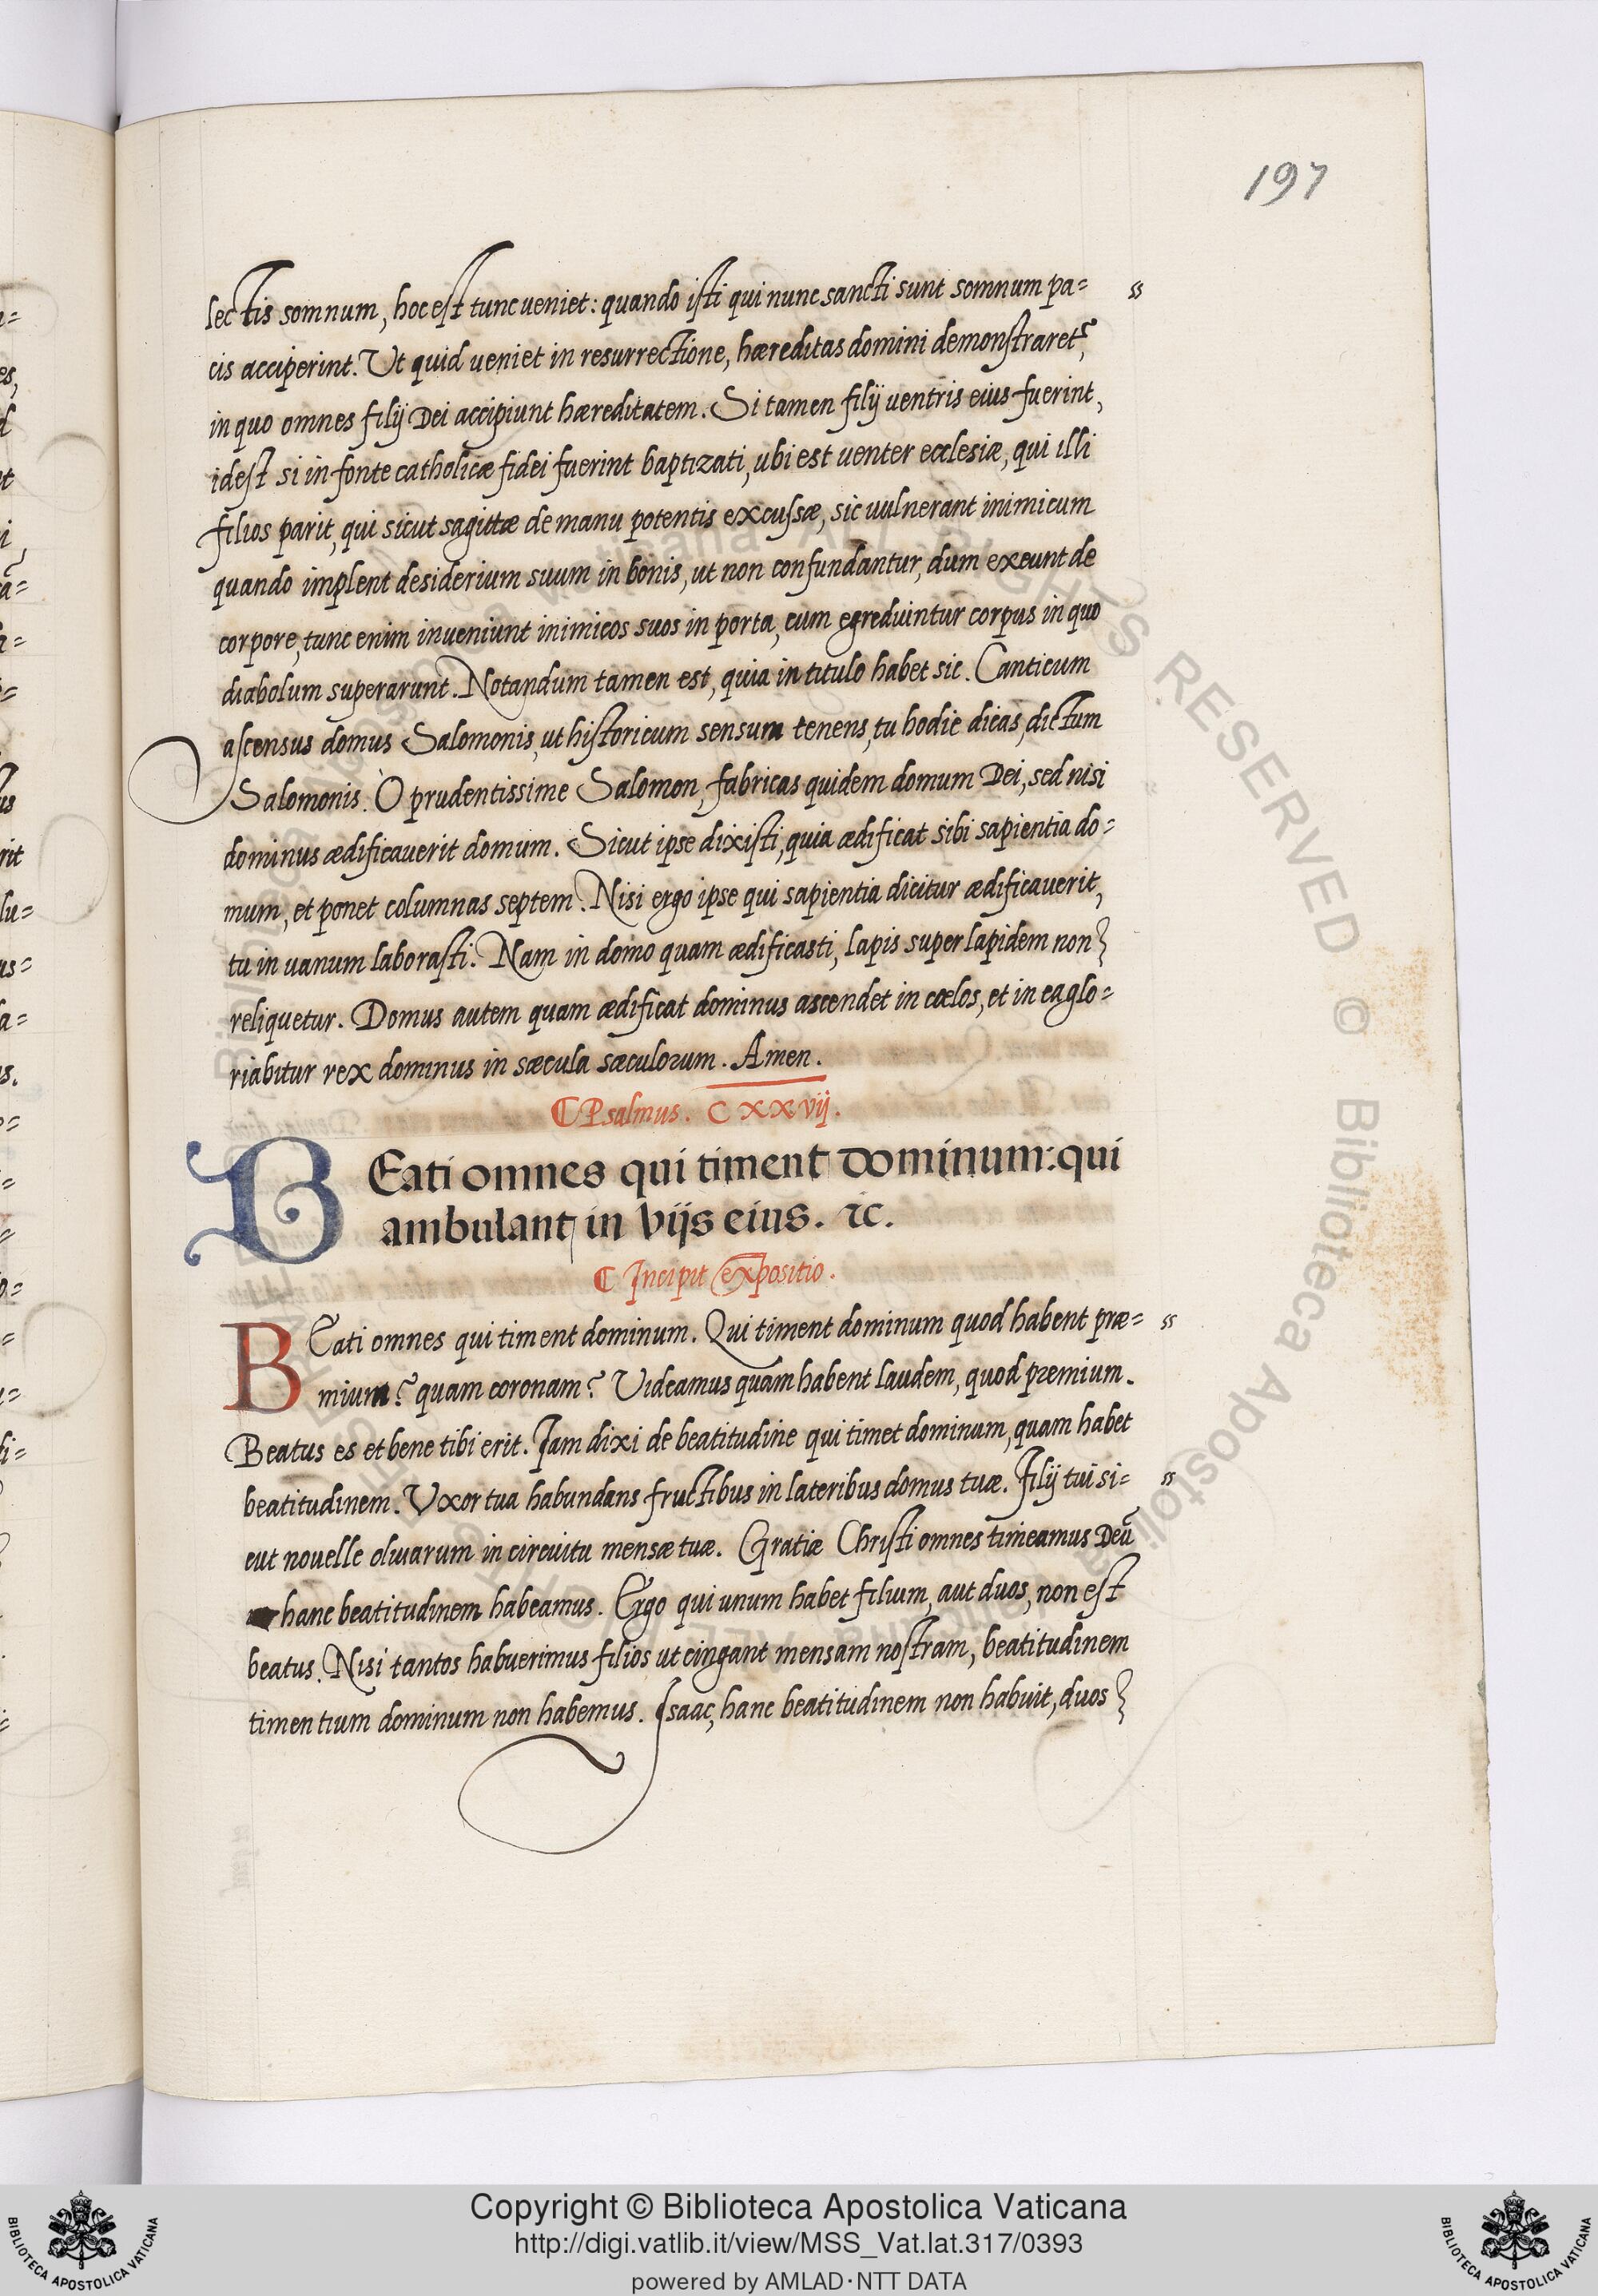 197
lectis somnum, hoc est tunc ueniet: quando isti qui nunc sancti sunt somnum pa=
cis acciperint. Ut quid ueniet in resurrectione, hæreditas domini demonstraret?,
in quo omnes filij Dei accipiunt hæreditatem. Si tamen filij uentris eius fuerint,
idest si in fonte catholicæ fidei fuerint baptizati, ubi est uenter ecclesiæ, qui illi
filios parit, qui sicut sagittæ de manu potentis excussæ, sic uulnerant inimicum
quando implent desiderium suum in bonis, ut non confundantur, dum exeunt de
corpore, tunc enim inueniunt inimicos suos in porta, cum egrediuntur corpus in quo
diabolum superarunt. Notandum tamen est, quia in titulo habet sic. Canticum
ascensus domus Salomonis, ut historicum sensum tenens, tu hodie dicas, dictum
Salomonis. O prudentissime Salomon, fabricas quidem domum Dei, sed nisi
dominus ædificauerit domum. Sicut ipse dixisti, quia ædificat sibi sapientia do=
mum, et ponet columnas septem. Nisi ergo ipse qui sapientia dicitur ædificauerit,
tu in uanum laborasti. Nam in domo quam ædificasti, lapis super lapidem non
reliquetur. Domus autem quam ædificat dominus ascendet in cœlos, et in ea glo=
riabitur rex dominus in sæcula sæculorum. Amen.
Psalmus. CXXvij.
BEati omnes qui timent dominum: qui
ambulant in vijs eius. ⁊c.
Incipit expositio.
BEati omnes qui timent dominum. Qui timent dominum quod habent præ=
mium? quam coronam? Uideamus quam habent laudem, quod premium.
Beatus es et bene tibi erit. Jam dixi de beatitudine qui timet dominum, quam habet
beatitudinem. Vxor tua habundans fructibus in lateribus domus tuæ. Filij tui si=
cut nouelle oliuarum in circuitu mensæ tuæ. Gratiæ Christi omnes timeamus Deū
hanc beatitudinem habeamus. Ergo qui unum habet filium, aut duos, non est
beatus. Nisi tantos habuerimus filios ut cingant mensam nostram, beatitudinem
timentium dominum non habemus. Isaac, hanc beatitudinem non habuit, duos
Copyright © Biblioteca Apostolica Vaticana
http://digi.vatlib.it/view/MSS_Vat.lat.317/0393
powered by AMLAD·NTT DATA